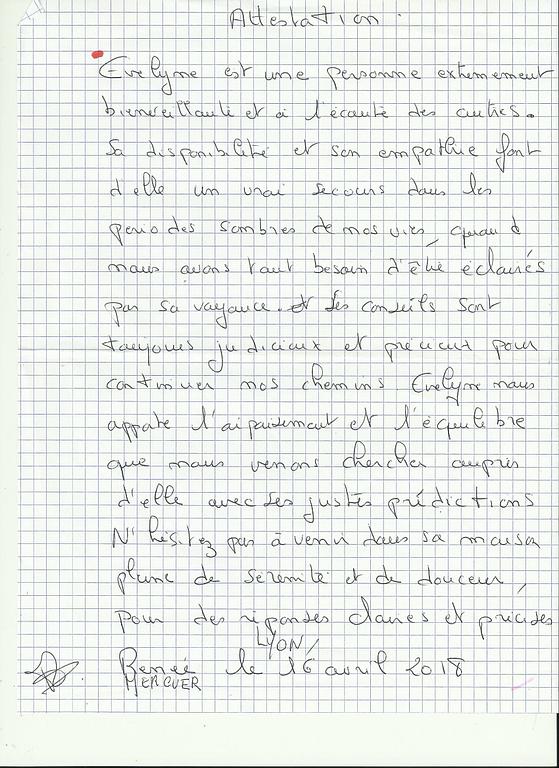 Attestation.
Evelyne est une personne extrêmement
bienveillante et à l'écoute des autres.
Sa disponibilité et son empathie font
d'elle un vrai secours dans les
périodes sombres de nos vies, quand
nous avons tant besoin d'être éclairés
par sa voyance. et Ses conseils sont
toujours judicieux et précieux pour
continuer nos chemins Evelyne nous
apporte l'apaisement et l'équilibre
que nous venons chercher auprès
d'elle avec ses justes prédictions
N'hésitez pas à venir dans sa maison
pleine de sérénité et de douceur,
pour des réponses claires et précises
LYON,
Renée le 16 avril 2018
MERCUER